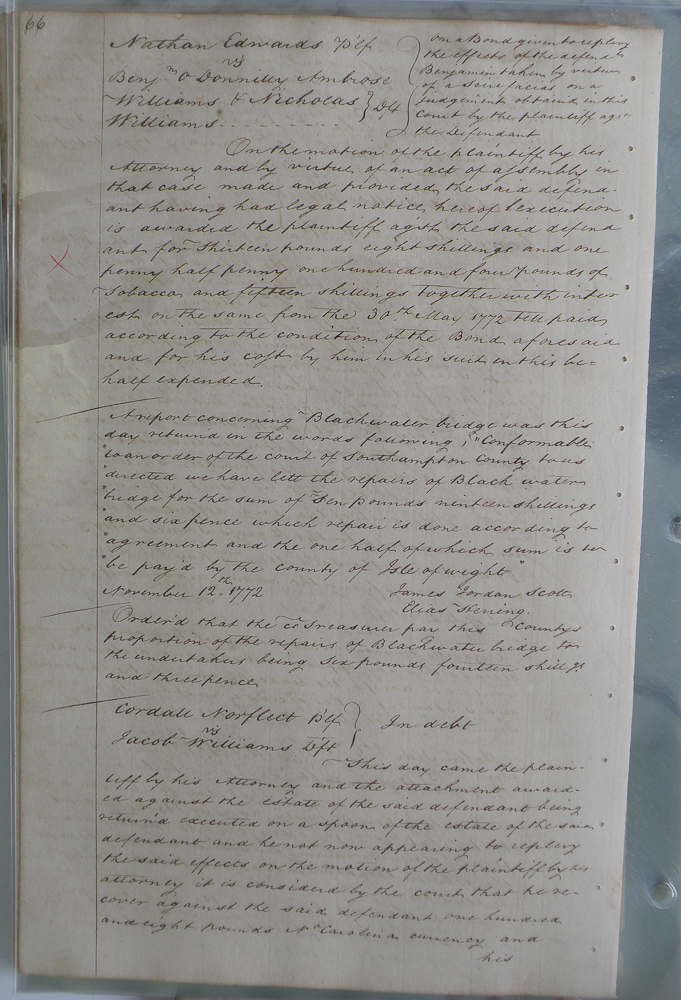 66
Nathan Edwards Plf
vs
Benj.m o Donnilly Ambrose
Williams & Nicholas } Dft
Williams
on a Bond given to replevy
the effects of the defend.t
Benjamin taken by virtue
of a Scire facias on a
Judgement obtaind in this
Court by the plaintiff ags.t
the Defendant
On the motion of the plaintiff by his
Attorney and by virtue of an act of assembly in
that case made and provided, the said defend-
ant having had legal notice hereof Execution
is awarded the plaintiff agst the said defend
ant for Thirteen pounds eight shillings and one
penny half penny one hundred and four pounds of
Tobacco and fifteen shillings together with inter
est on the same from the 30th May 1772 till paid
according to the condition of the Bond aforesaid
and for his cost by him in his suit in this be-
half expended.
A report concerning Blackwater bridge was this
day returnd in the words following; "Conformable
"to an order of the court of Southampton County to us
"directed we have lett the repairs of Black water
"bridge for the sum of Ten pounds ninteen shillings
"and six pence which repair is done according to
"agreement and the one half of which sum is to
"be pay'd by the county of Isle of wight"
November 12.th 1772 James Jordan Scott
Elias Herring.
Order'd that the Treasurer pay this Countys
proportion of the repairs of Blackwater bridge to
the undertakers being six pounds fourteen shillgs
and three pence
Cordall Norfleet Plf
vs } In debt
Jacob Williams Dft
This day came the plain-
tiff by his Attorney and the attachment award-
ed against the estate of the said defendant being
returnd executed on a spoon of the estate of the said
defendant and he not now appearing to replevy
the said effects on the motion of the plaintiff by his
attorney it is considerd by the court that he re-
cover against the said defendant one hundred
and eight pounds No Carolina currency and
his